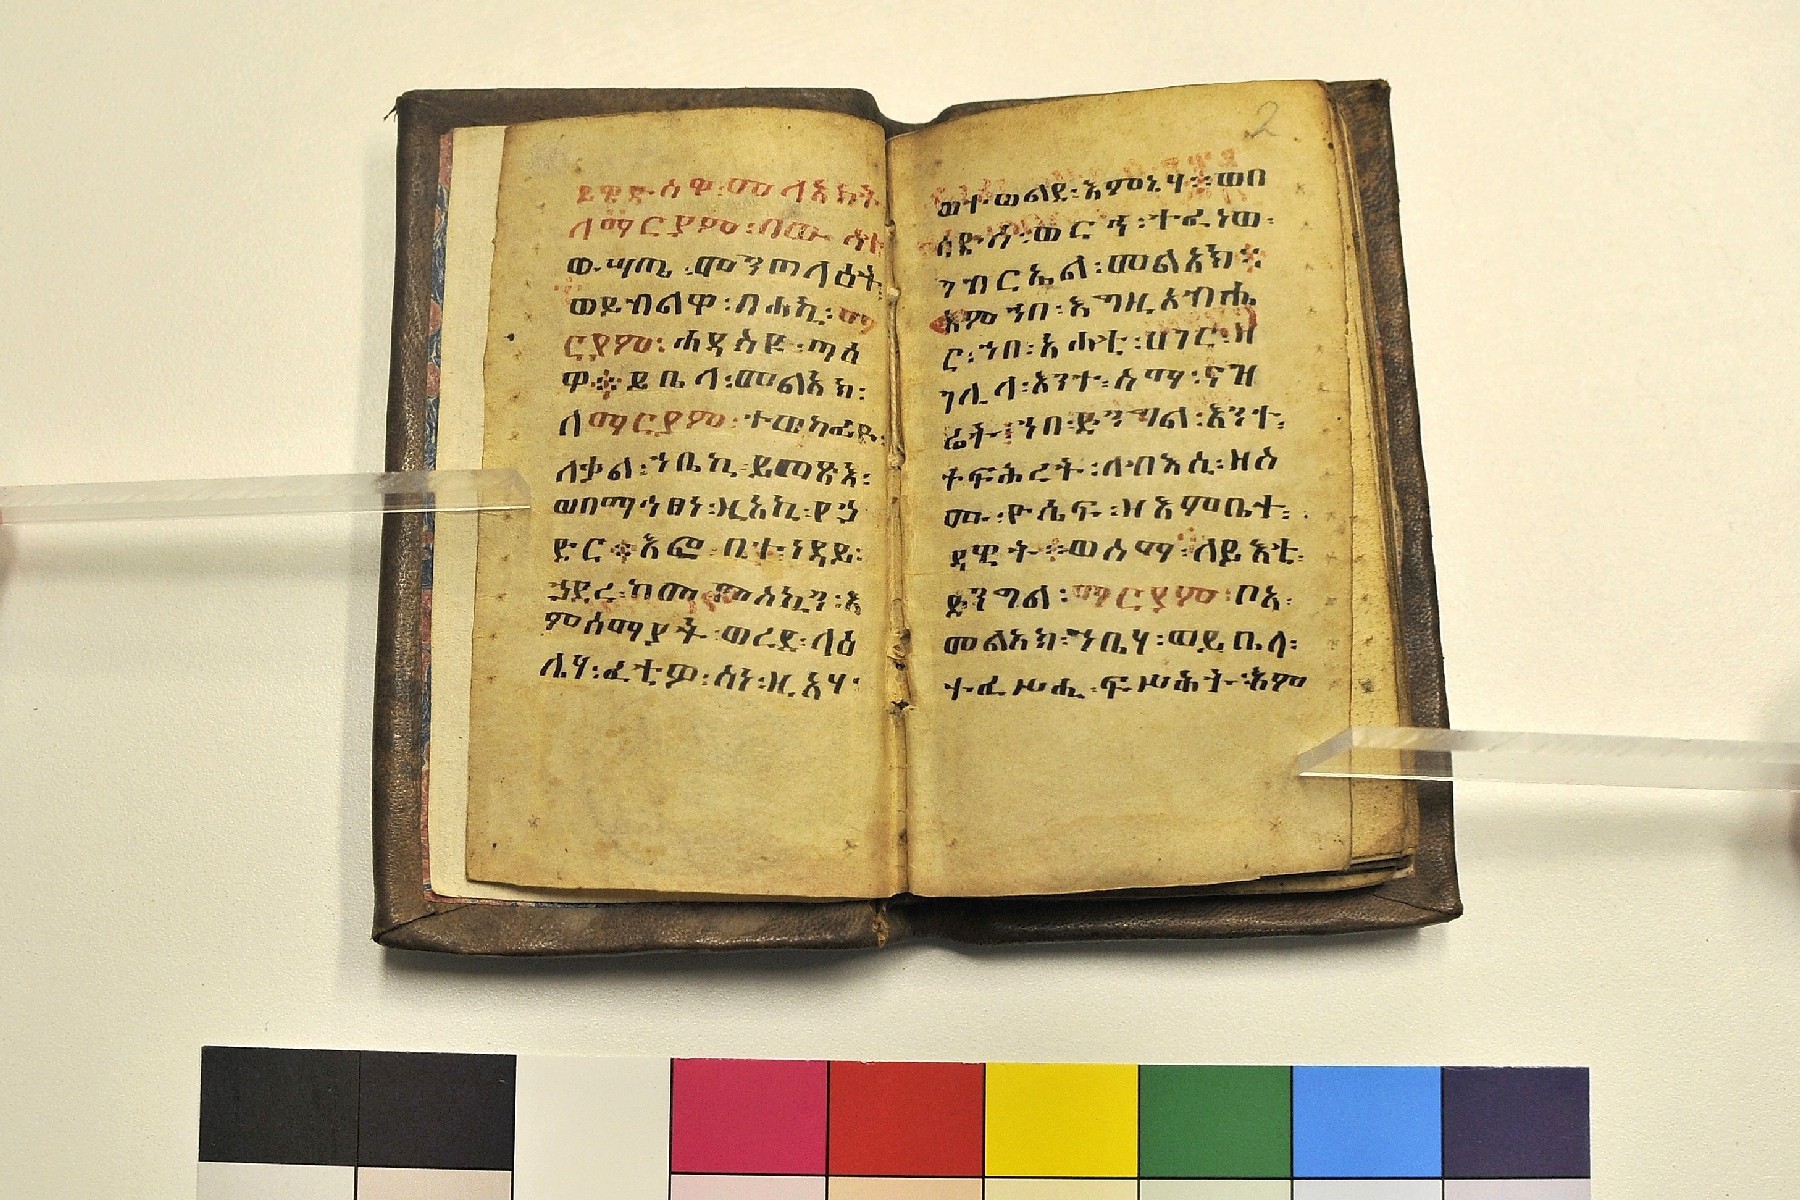 ይዌድስዋ፡መላእክት
ለማርያም፡በውስተ
ውሣጤ፡መንጦላዕት፡
ወይብልዋ፡በሐኪ፡ማ
ርያም፡ሐዳስዩ፡ጣዕ
ዋ፨ይቤላ፡መልአክ፡
ለማርያም፡ተወከፊዮ፡
ለቃል፡ኀቤኪ፡ይመጽእ፡
ወበማኅፀነ፡ዚአኪ፡የኃ
ድር፨እፎ፡ቤተ፡ነዳይ፡
ኃደረ፡ከመ፡ምስኪን፡እ
ምሰማያት፡ወረደ፡ላዕ
ሌሃ፡ፈቲዎ፡ስነ፡ዚአሃ፡
2
ወተወልደ፡እምኒሃ፨ወበ
ሳድስ፡ወርኅ፡ተፈነወ፡
ገብርኤል፡መልአክ፨
እምኀበ፡እግዚአብሔ
ር፡ኀበ፡አሐቲ፡ሀገር፡ዘ
ገሊላ፡እንተ፡ስማ፡ናዝ
ሬት፡ኀበ፡ድንግል፡እንተ፡
ተፍሕረት፡ለብእሲ፡ዘስ
ሙ፡ዮሴፍ፡ዘእምቤተ፡
ዳዊት፨ወስማ፡ለይእቲ፡
ድንግል፡ማርያም፡ቦአ፡
መልአክ፡ኀቤሃ፡ወይቤላ፡
ተፈሥሒ፡ፍሥሕት፡እም